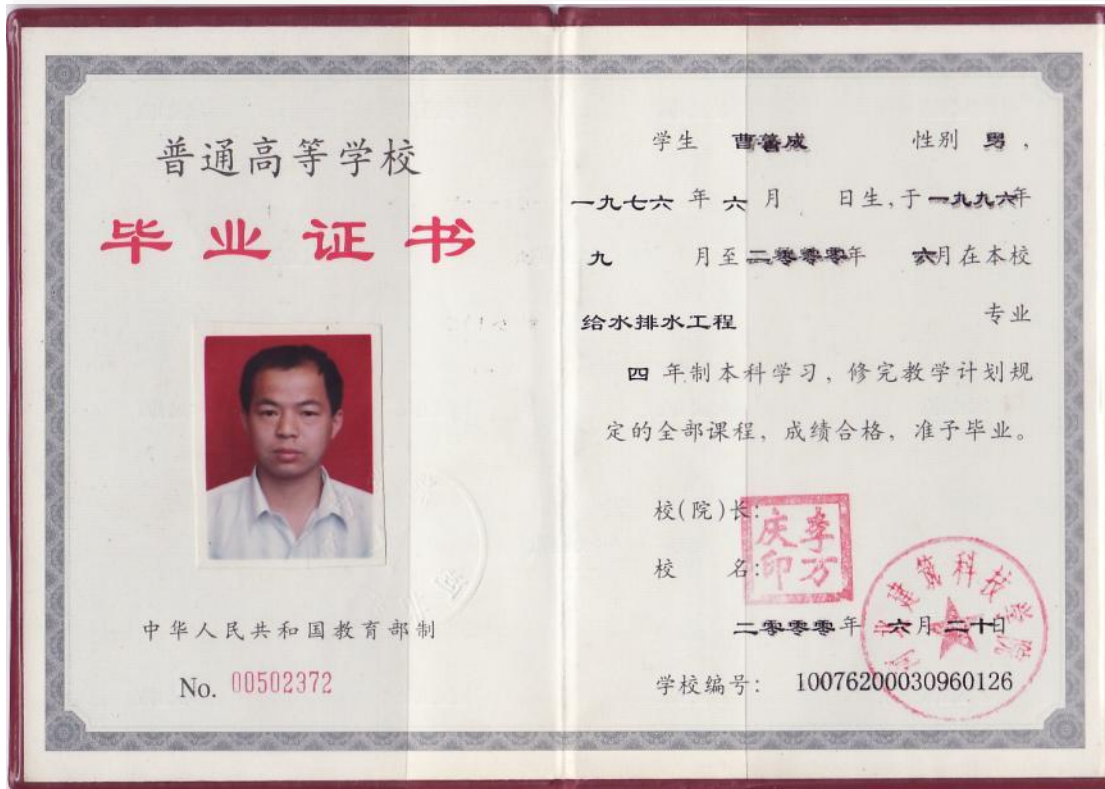 普通高等学校
毕业证书
中华人民共和国教育部制
No. 00502372
学生 曹善成 性别 男,
一九七六 年 六 月 日生,于 一九九六年
九 月至 二零零零年 六月在本校
给水排水工程 专业
四 年制本科学习,修完教学计划规
定的全部课程,成绩合格,准予毕业。
校(院)长:
李万庆印
校 名:
河北建筑科技学院
二零零零年 六月 二十日
学校编号: 10076200030960126